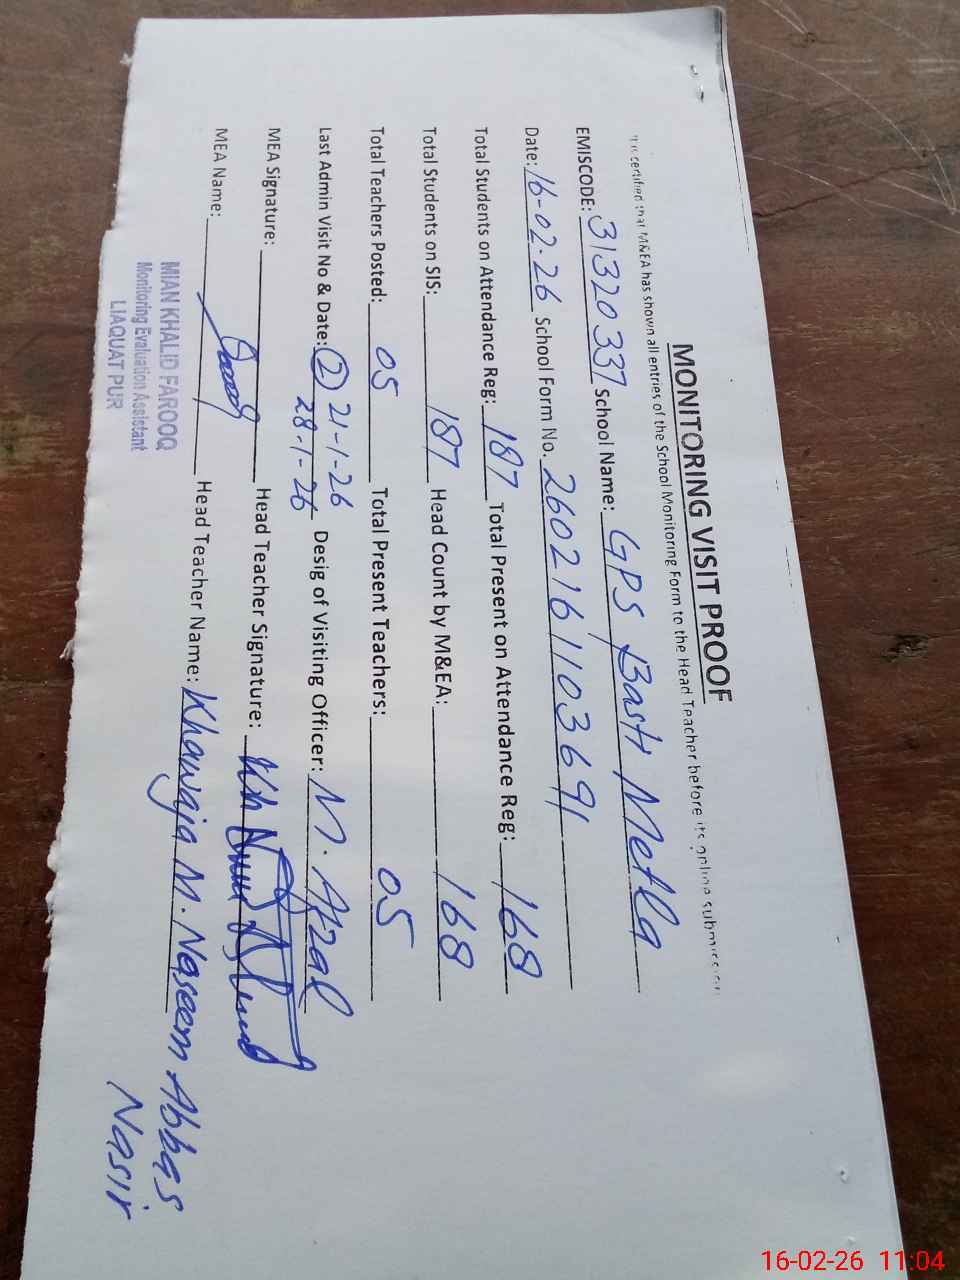 MONITORING VISIT PROOF
It is certified that M&EA has shown all entries of the School Monitoring Form to the Head Teacher before its online submission
EMISCODE: 31320337 School Name: GPS Basti Metla
Date: 16-02-26 School Form No. 2602161103691
Total Students on Attendance Reg: 187 Total Present on Attendance Reg: 168
Total Students on SIS: 187 Head Count by M&EA: 168
Total Teachers Posted: 05 Total Present Teachers: 05
Last Admin Visit No & Date: 2 21-1-26 Desig of Visiting Officer: M. Afzal
28-1-26
MEA Signature: Head Teacher Signature:
MEA Name: Head Teacher Name: Khawaja M. Naseem Abbas
Nasir
MIAN KHALID FAROOQ
Monitoring Evaluation Assistant
LIAQUAT PUR
16-02-26 11:04